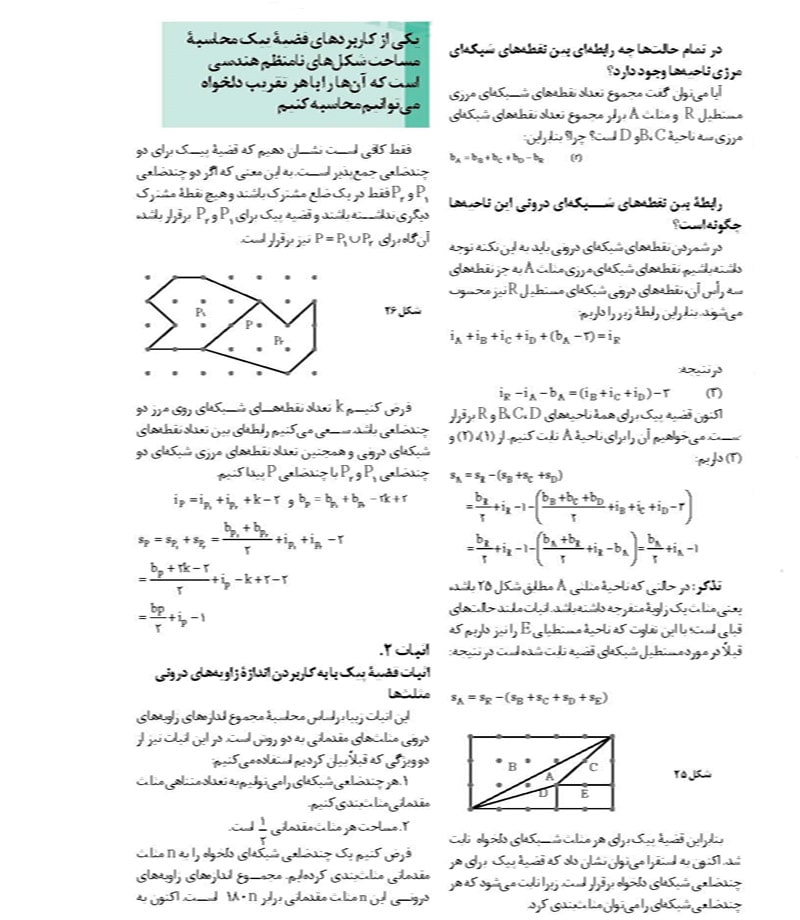 در تمام حالت‌ها چه رابطه‌ای بین نقطه‌های شبکه‌ای
مرزی ناحیه‌ها وجود دارد؟
آیا می‌توان گفت مجموع تعداد نقطه‌های شبکه‌ای مرزی
مستطیل R و مثلث A برابر مجموع تعداد نقطه‌های شبکه‌ای
مرزی سه ناحیهٔ B، C و D است؟ چرا؟ بنابراین:
b_A = b_B + b_C + b_D − b_R (۲)
رابطهٔ بین نقطه‌های شبکه‌ای درونی این ناحیه‌ها
چگونه است؟
در شمردن نقطه‌های شبکه‌ای درونی باید به این نکته توجه
داشته باشیم. نقطه‌های شبکه‌ای مرزی مثلث A به جز نقطه‌های
سه رأس آن، نقطه‌های درونی شبکه‌ای مستطیل R نیز محسوب
می‌شوند. بنابراین رابطهٔ زیر را داریم:
i_A + i_B + i_C + i_D + (b_A − ۳) = i_R
در نتیجه:
(۳) i_R − i_A − b_A = (i_B + i_C + i_D) − ۳
اکنون قضیه پیک برای همهٔ ناحیه‌های B، C، D و R برقرار
است. می‌خواهیم آن را برای ناحیهٔ A ثابت کنیم. از (۱)، (۲) و
(۳) داریم:
s_A = s_R − (s_B + s_C + s_D)
= b_R/۲ + i_R − ۱ − ((b_B + b_C + b_D)/۲ + i_B + i_C + i_D − ۳)
= b_R/۲ + i_R − ۱ − ((b_A + b_R)/۲ + i_R − b_A) = b_A/۲ + i_A − ۱
تذکر: در حالتی که ناحیهٔ مثلثی A مطابق شکل ۲۵ باشد،
یعنی مثلث یک زاویهٔ منفرجه داشته باشد. اثبات مانند حالت‌های
قبلی است؛ با این تفاوت که ناحیهٔ مستطیلی E را نیز داریم که
قبلاً در مورد مستطیل شبکه‌ای قضیه ثابت شده است در نتیجه:
s_A = s_R − (s_B + s_C + s_D + s_E)
B
C
A
D
E
شکل ۲۵
بنابراین قضیهٔ پیک برای هر مثلث شبکه‌ای دلخواه ثابت
شد. اکنون به استقرا می‌توان نشان داد که قضیهٔ پیک برای هر
چندضلعی شبکه‌ای دلخواه برقرار است. زیرا ثابت می‌شود که هر
چندضلعی شبکه‌ای را می‌توان مثلث‌بندی کرد.
یکی از کاربردهای قضیهٔ پیک محاسبهٔ
مساحت شکل‌های نامنظم هندسی
است که آن‌ها را با هر تقریب دلخواه
می‌توانیم محاسبه کنیم
فقط کافی است نشان دهیم که قضیهٔ پیک برای دو
چندضلعی جمع‌پذیر است. به این معنی که اگر دو چندضلعی
P_۱ و P_۲ فقط در یک ضلع مشترک باشند و هیچ نقطهٔ مشترک
دیگری نداشته باشند و قضیه پیک برای P_۱ و P_۲ برقرار باشد،
آن‌گاه برای P = P_۱ ∪ P_۲ نیز برقرار است.
P_۱
P
P_۲
شکل ۲۶
فرض کنیم k تعداد نقطه‌های شبکه‌ای روی مرز دو
چندضلعی باشد. سعی می‌کنیم رابطه‌ای بین تعداد نقطه‌های
شبکه‌ای درونی و همچنین تعداد نقطه‌های مرزی شبکه‌ای دو
چندضلعی P_۱ و P_۲ با چندضلعی P پیدا کنیم.
i_P = i_P۱ + i_P۲ + k − ۲ و b_P = b_P۱ + b_P۲ − ۲k + ۲
s_P = s_P۱ + s_P۲ = (b_P۱ + b_P۲)/۲ + i_P۱ + i_P۲ − ۲
= (b_P + ۲k − ۲)/۲ + i_P − k + ۲ − ۲
= bp/۲ + i_P − ۱
اثبات ۲.
اثبات قضیهٔ پیک با به کار بردن اندازهٔ زاویه‌های درونی
مثلث‌ها
این اثبات زیبا براساس محاسبهٔ مجموع اندازه‌های زاویه‌های
درونی مثلث‌های مقدماتی به دو روش است. در این اثبات نیز از
دو ویژگی که قبلاً بیان کردیم استفاده می‌کنیم:
۱. هر چندضلعی شبکه‌ای را می‌توانیم به تعداد متناهی مثلث
مقدماتی مثلث‌بندی کنیم.
۲. مساحت هر مثلث مقدماتی ۱/۲ است.
فرض کنیم یک چندضلعی شبکه‌ای دلخواه را به n مثلث
مقدماتی مثلث‌بندی کرده‌ایم. مجموع اندازه‌های زاویه‌های
درونی این n مثلث مقدماتی برابر ۱۸۰n است. اکنون به